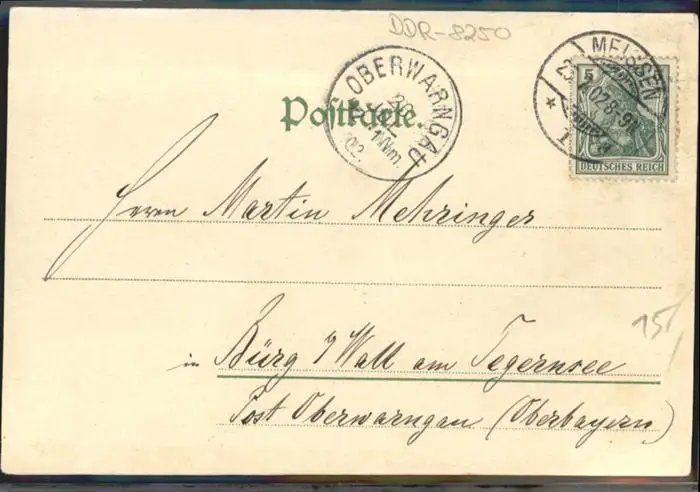 DDR-8250
OBERWARNGAU
1 Nm.
02.
MEISSEN
02.8-9V
1
5
DEUTSCHES REICH
Postkarte
Herrn Martin Mehringer
15,
in Bürg a/ Wall am Tegernsee
Post Oberwarngau (Oberbayern)